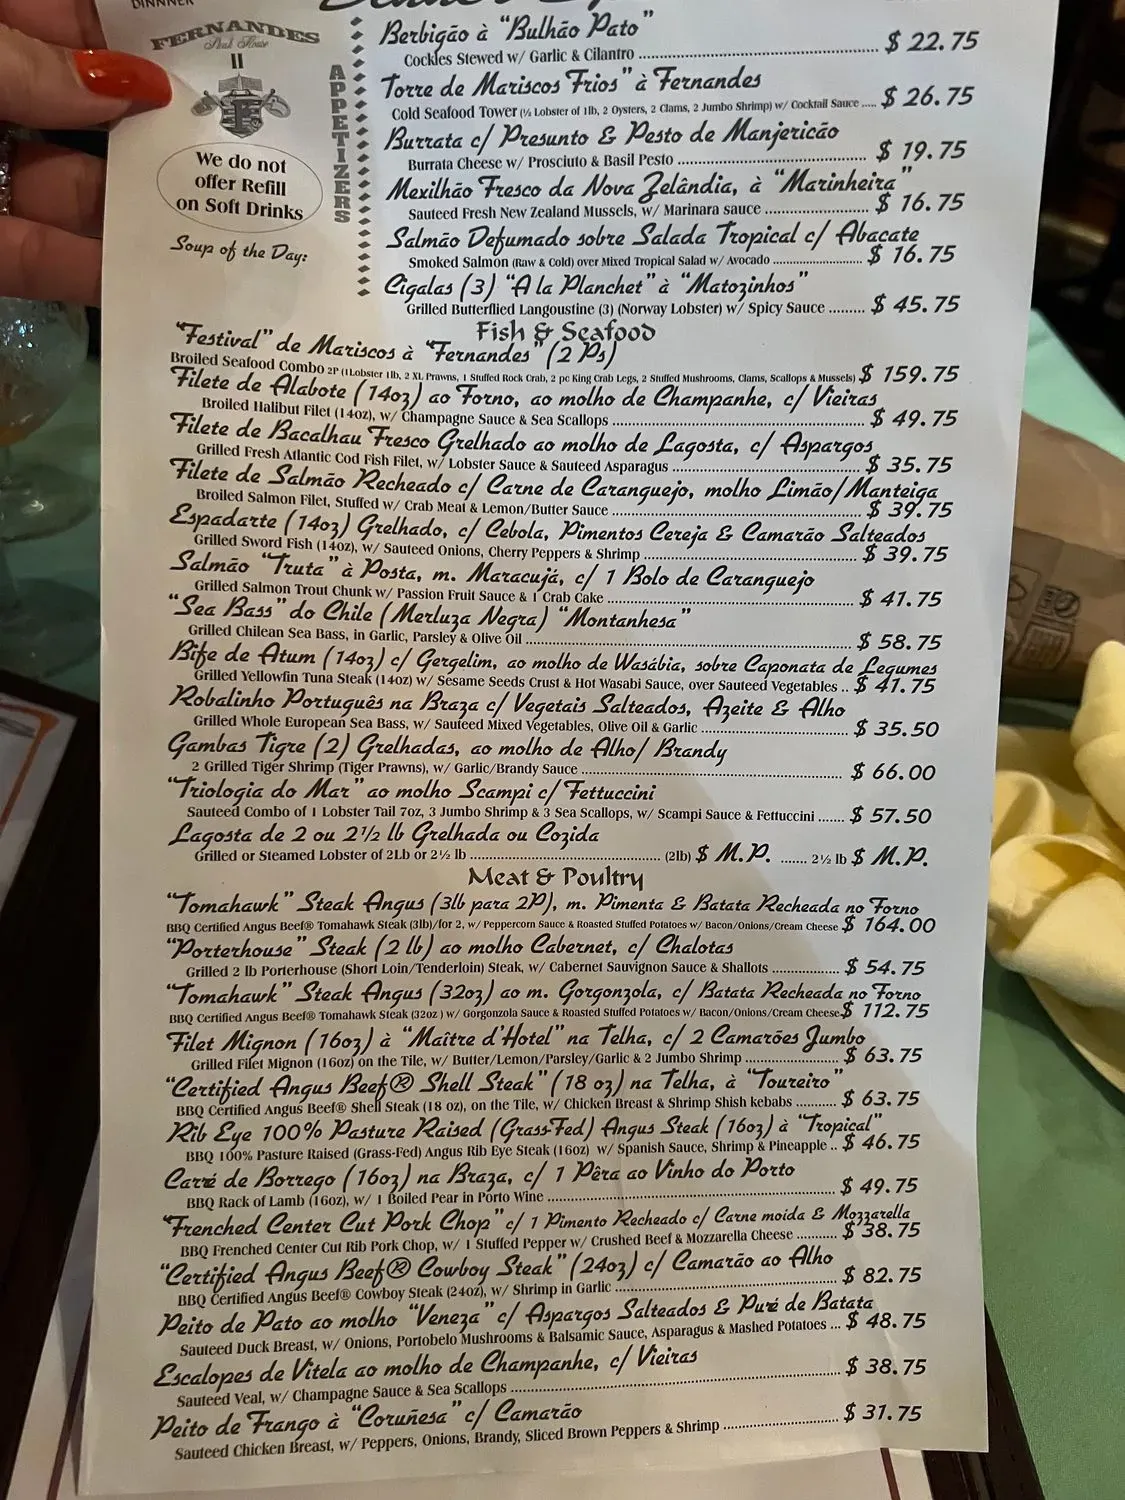 DINNNER
FERNANDES
Steak House
II
We do not
offer Refill
on Soft Drinks
Soup of the Day:
APPETIZERS
Berbigão à "Bulhão Pato"
Cockles Stewed w/ Garlic & Cilantro ........ $ 22.75
Torre de Mariscos Frios" à Fernandes
Cold Seafood Tower (½ Lobster of 1lb, 2 Oysters, 2 Clams, 2 Jumbo Shrimp) w/ Cocktail Sauce ..... $ 26.75
Burrata c/ Presunto & Pesto de Manjericão
Burrata Cheese w/ Prosciuto & Basil Pesto ........ $ 19.75
Mexilhão Fresco da Nova Zelândia, à "Marinheira"
Sauteed Fresh New Zealand Mussels, w/ Marinara sauce ........ $ 16.75
Salmão Defumado sobre Salada Tropical c/ Abacate
Smoked Salmon (Raw & Cold) over Mixed Tropical Salad w/ Avocado ........ $ 16.75
Cigalas (3) "A la Planchet" à "Matozinhos"
Grilled Butterflied Langoustine (3) (Norway Lobster) w/ Spicy Sauce ......... $ 45.75
Fish & Seafood
"Festival" de Mariscos à "Fernandes" (2 Ps)
Broiled Seafood Combo 2P (1Lobster 1lb, 2 XL Prawns, 1 Stuffed Rock Crab, 2 pc King Crab Legs, 2 Stuffed Mushrooms, Clams, Scallops & Mussels) $ 159.75
Filete de Alabote (14oz) ao Forno, ao molho de Champanhe, c/ Vieiras
Broiled Halibut Filet (14oz), w/ Champagne Sauce & Sea Scallops ........ $ 49.75
Filete de Bacalhau Fresco Grelhado ao molho de Lagosta, c/ Aspargos
Grilled Fresh Atlantic Cod Fish Filet, w/ Lobster Sauce & Sauteed Asparagus ........ $ 35.75
Filete de Salmão Recheado c/ Carne de Caranguejo, molho Limão/Manteiga
Broiled Salmon Filet, Stuffed w/ Crab Meat & Lemon/Butter Sauce ........ $ 39.75
Espadarte (14oz) Grelhado, c/ Cebola, Pimentos Cereja & Camarão Salteados
Grilled Sword Fish (14oz), w/ Sauteed Onions, Cherry Peppers & Shrimp ........ $ 39.75
Salmão "Truta" à Posta, m. Maracujá, c/ 1 Bolo de Caranguejo
Grilled Salmon Trout Chunk w/ Passion Fruit Sauce & 1 Crab Cake ........ $ 41.75
"Sea Bass" do Chile (Merluza Negra) "Montanhesa"
Grilled Chilean Sea Bass, in Garlic, Parsley & Olive Oil ........ $ 58.75
Bife de Atum (14oz) c/ Gergelim, ao molho de Wasábia, sobre Caponata de Legumes
Grilled Yellowfin Tuna Steak (14oz) w/ Sesame Seeds Crust & Hot Wasabi Sauce, over Sauteed Vegetables .. $ 41.75
Robalinho Português na Braza c/ Vegetais Salteados, Azeite & Alho
Grilled Whole European Sea Bass, w/ Sauteed Mixed Vegetables, Olive Oil & Garlic ........ $ 35.50
Gambas Tigre (2) Grelhadas, ao molho de Alho/ Brandy
2 Grilled Tiger Shrimp (Tiger Prawns), w/ Garlic/Brandy Sauce ........ $ 66.00
"Triologia do Mar" ao molho Scampi c/ Fettuccini
Sauteed Combo of 1 Lobster Tail 7oz, 3 Jumbo Shrimp & 3 Sea Scallops, w/ Scampi Sauce & Fettuccini ....... $ 57.50
Lagosta de 2 ou 2½ lb Grelhada ou Cozida
Grilled or Steamed Lobster of 2Lb or 2½ lb ........ (2lb) $ M.P. ....... 2½ lb $ M.P.
Meat & Poultry
"Tomahawk" Steak Angus (3lb para 2P), m. Pimenta & Batata Recheada no Forno
BBQ Certified Angus Beef® Tomahawk Steak (3lb)/for 2, w/ Peppercorn Sauce & Roasted Stuffed Potatoes w/ Bacon/Onions/Cream Cheese $ 164.00
"Porterhouse" Steak (2 lb) ao molho Cabernet, c/ Chalotas
Grilled 2 lb Porterhouse (Short Loin/Tenderloin) Steak, w/ Cabernet Sauvignon Sauce & Shallots ........ $ 54.75
"Tomahawk" Steak Angus (32oz) ao m. Gorgonzola, c/ Batata Recheada no Forno
BBQ Certified Angus Beef® Tomahawk Steak (32oz ) w/ Gorgonzola Sauce & Roasted Stuffed Potatoes w/ Bacon/Onions/Cream Cheese $ 112.75
Filet Mignon (16oz) à "Maître d'Hotel" na Telha, c/ 2 Camarões Jumbo
Grilled Filet Mignon (16oz) on the Tile, w/ Butter/Lemon/Parsley/Garlic & 2 Jumbo Shrimp ........ $ 63.75
"Certified Angus Beef® Shell Steak" (18 oz) na Telha, à "Toureiro"
BBQ Certified Angus Beef® Shell Steak (18 oz), on the Tile, w/ Chicken Breast & Shrimp Shish kebabs .......... $ 63.75
Rib Eye 100% Pasture Raised (Grass-Fed) Angus Steak (16oz) à "Tropical"
BBQ 100% Pasture Raised (Grass-Fed) Angus Rib Eye Steak (16oz) w/ Spanish Sauce, Shrimp & Pineapple .. $ 46.75
Carré de Borrego (16oz) na Braza, c/ 1 Pêra ao Vinho do Porto
BBQ Rack of Lamb (16oz), w/ 1 Boiled Pear in Porto Wine ........ $ 49.75
"Frenched Center Cut Pork Chop" c/ 1 Pimento Recheado c/ Carne moida & Mozzarella
BBQ Frenched Center Cut Rib Pork Chop, w/ 1 Stuffed Pepper w/ Crushed Beef & Mozzarella Cheese .......... $ 38.75
"Certified Angus Beef® Cowboy Steak" (24oz) c/ Camarão ao Alho
BBQ Certified Angus Beef® Cowboy Steak (24oz), w/ Shrimp in Garlic ........ $ 82.75
Peito de Pato ao molho "Veneza" c/ Aspargos Salteados & Puré de Batata
Sauteed Duck Breast, w/ Onions, Portobelo Mushrooms & Balsamic Sauce, Asparagus & Mashed Potatoes ... $ 48.75
Escalopes de Vitela ao molho de Champanhe, c/ Vieiras
Sauteed Veal, w/ Champagne Sauce & Sea Scallops ........ $ 38.75
Peito de Frango à "Coruñesa" c/ Camarão
Sauteed Chicken Breast, w/ Peppers, Onions, Brandy, Sliced Brown Peppers & Shrimp ........ $ 31.75